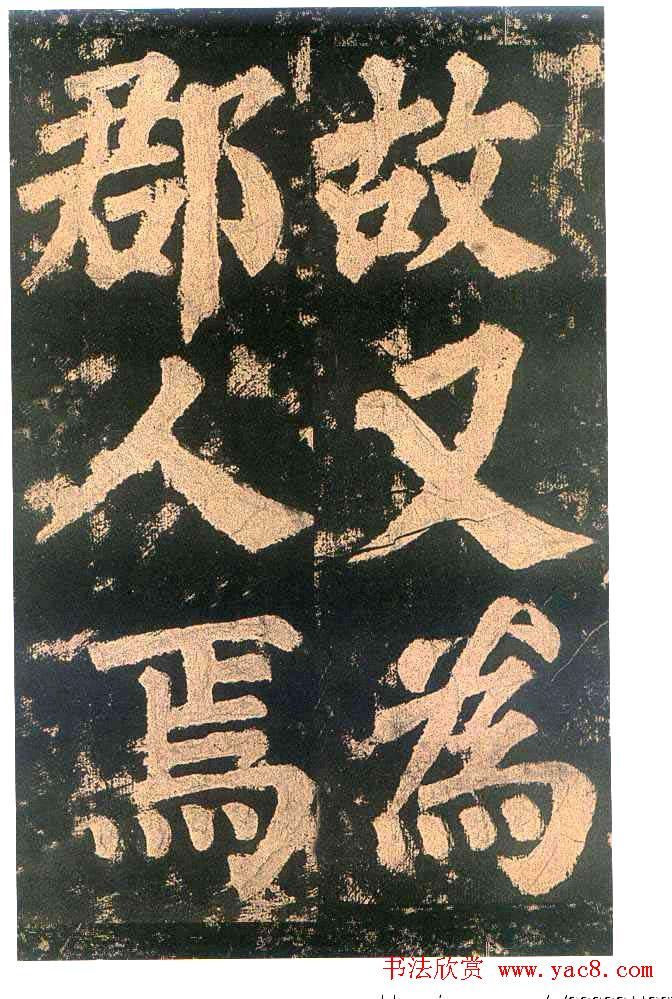 故又為
郡人焉
书法欣赏 www.yac8.com